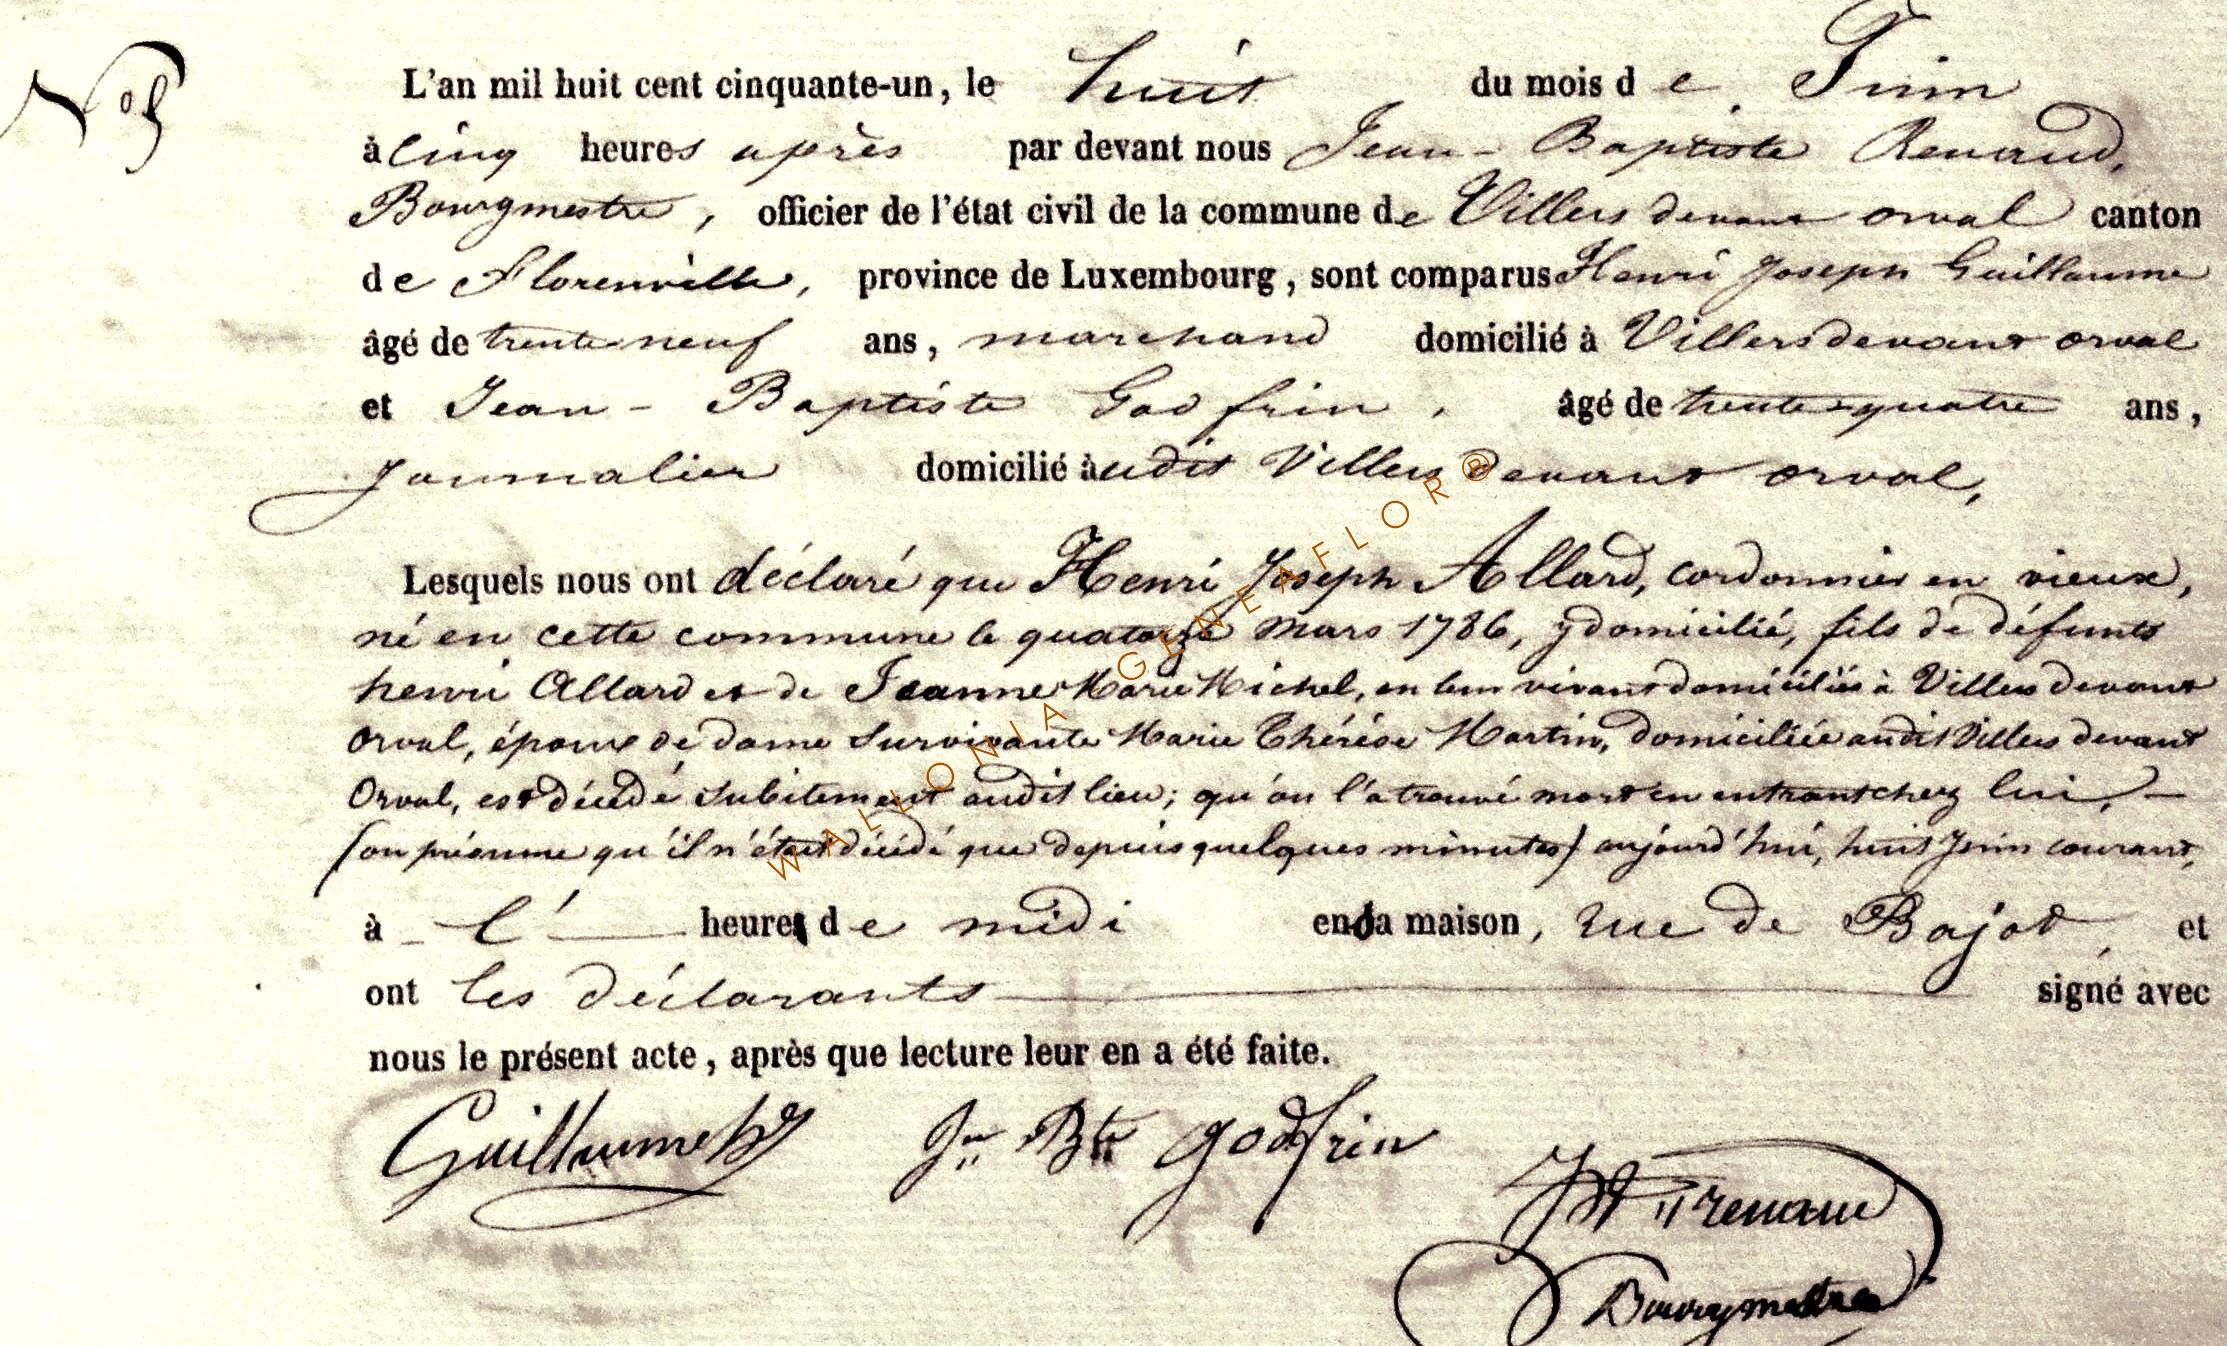 N° 5
L'an mil huit cent cinquante-un, le huit du mois de Juin
à cinq heures après par devant nous Jean-Baptiste Renaud,
Bourgmestre, officier de l'état civil de la commune de Villers devant orval canton
de Florenville, province de Luxembourg, sont comparus Henri Joseph Guillaume
âgé de trente neuf ans, marchand domicilié à Villers devant orval
et Jean-Baptiste Godfrin, âgé de trente-quatre ans,
Journalier domicilié audit Villers devant orval,
Lesquels nous ont déclaré que Henri Joseph Allard, cordonnier en vieux,
né en cette commune le quatorze mars 1786, y domicilié, fils de défunts
henri Allard et de Jeanne Marie Michel, en leur vivant domiciliés à Villers devant
Orval, époux de dame survivante Marie Thérése Martin, domiciliée audit Villers devant
Orval, est décédé subitement audit lieu; qu'on l'a trouvé mort en entrant chez lui, —
(on présume qu'il n'était décédé que depuis quelques minutes) aujourd'hui, huit Juin courant,
à l' heure de midi en sa maison, rue de Bajot, et
ont les déclarants signé avec
nous le présent acte, après que lecture leur en a été faite.
Guillaume hj Jn Bte godfrin
JB Renaud
Bourgmestre
WALLONIA GENEAFLOR®